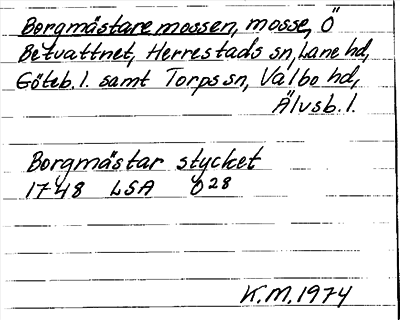 Borgmästaremossen, mosse, Ö
Betvattnet, Herrestads sn, Lane hd,
Göteb. l. samt Torps sn, Valbo hd,
Älvsb. l.
Borgmästar stycket
1748 LSA Ö28
K.M. 1974